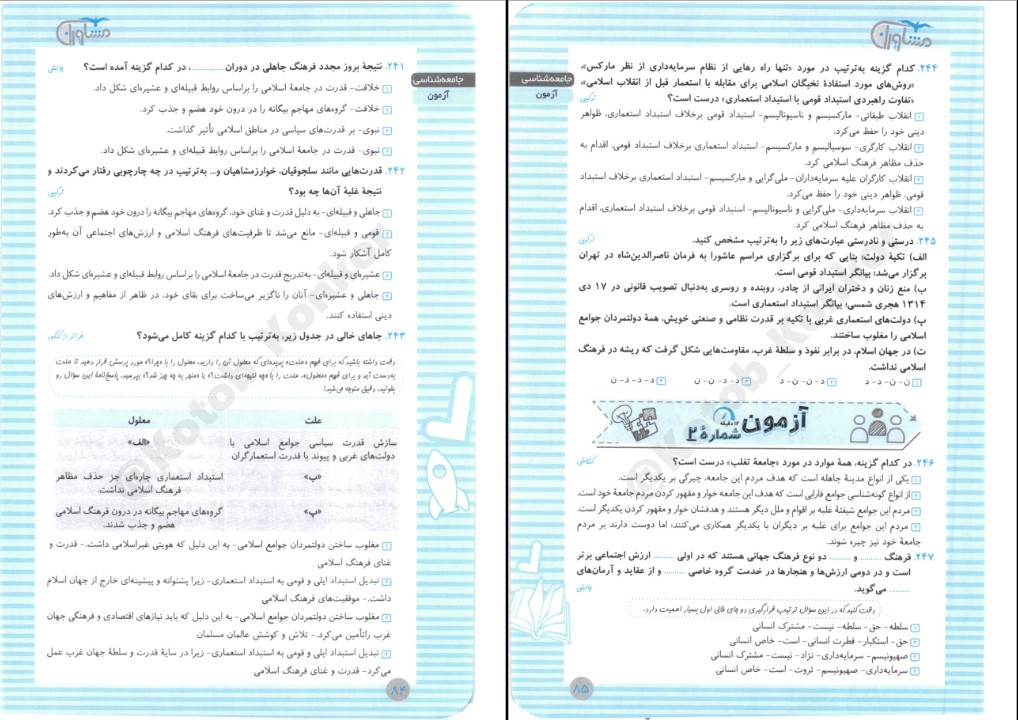 مشاوران
جامعه‌شناسی
آزمون
۲۴۱. نتیجهٔ بروز مجدد فرهنگ جاهلی در دوران ............، در کدام گزینه آمده است؟
دانش
۱ خلافت- قدرت در جامعهٔ اسلامی را براساس روابط قبیله‌ای و عشیره‌ای شکل داد.
۲ خلافت- گروه‌های مهاجم بیگانه را در درون خود هضم و جذب کرد.
۳ نبوی- بر قدرت‌های سیاسی در مناطق اسلامی تأثیر گذاشت.
۴ نبوی- قدرت در جامعهٔ اسلامی را براساس روابط قبیله‌ای و عشیره‌ای شکل داد.
۲۴۲. قدرت‌هایی مانند سلجوقیان، خوارزمشاهیان و... به‌ترتیب در چه چارچوبی رفتار می‌کردند و
نتیجهٔ غلبهٔ آن‌ها چه بود؟
ترکیبی
۱ جاهلی و قبیله‌ای- به دلیل قدرت و غنای خود، گروه‌های مهاجم بیگانه را درون خود هضم و جذب کرد.
۲ قومی و قبیله‌ای- مانع می‌شد تا ظرفیت‌های فرهنگ اسلامی و ارزش‌های اجتماعی آن به‌طور
کامل آشکار شود.
۳ عشیره‌ای و قبیله‌ای- به‌تدریج قدرت در جامعهٔ اسلامی را براساس روابط قبیله‌ای و عشیره‌ای شکل داد.
۴ جاهلی و عشیره‌ای- آنان را ناگزیر می‌ساخت برای بقای خود، در ظاهر از مفاهیم و ارزش‌های
دینی استفاده کنند.
۲۴۳. جاهای خالی در جدول زیر، به‌ترتیب با کدام گزینه کامل می‌شود؟
فراتر از کنکور
دقت داشته باشید که برای فهم «علت» پدیده‌ای که معلول آن را دارید، معلول را با «چرا؟» مورد پرسش قرار دهید تا علت
به‌دست آید و برای فهم «معلول»، علت را با «چه نتیجه‌ای داشت؟» یا «منجر به چه چیز شد؟» بپرسید. پاسخ‌نامهٔ این سؤال رو
بخونید، دقیق متوجه می‌شید!
علت معلول
سازش قدرت سیاسی جوامع اسلامی با
دولت‌های غربی و پیوند با قدرت استعمارگران
«الف»
«ب»
استبداد استعماری چاره‌ای جز حذف مظاهر
فرهنگ اسلامی نداشت.
«پ»
گروه‌های مهاجم بیگانه در درون فرهنگ اسلامی
هضم و جذب شدند.
۱ مغلوب ساختن دولتمردان جوامع اسلامی- به این دلیل که هویتی غیراسلامی داشت.- قدرت و
غنای فرهنگ اسلامی
۲ تبدیل استبداد ایلی و قومی به استبداد استعماری- زیرا پشتوانه و پیشینه‌ای خارج از جهان اسلام
داشت.- موفقیت‌های فرهنگ اسلامی
۳ مغلوب ساختن دولتمردان جوامع اسلامی- به این دلیل که باید نیازهای اقتصادی و فرهنگی جهان
غرب را تأمین می‌کرد.- تلاش و کوشش عالمان مسلمان
۴ تبدیل استبداد ایلی و قومی به استبداد استعماری- زیرا در سایهٔ قدرت و سلطهٔ جهان غرب عمل
می‌کرد- قدرت و غنای فرهنگ اسلامی
۸۴
مشاوران
جامعه‌شناسی
آزمون
۲۴۴. کدام گزینه به‌ترتیب در مورد «تنها راه رهایی از نظام سرمایه‌داری از نظر مارکس»،
«روش‌های مورد استفادهٔ نخبگان اسلامی برای مقابله با استعمار قبل از انقلاب اسلامی»،
«تفاوت راهبردی استبداد قومی با استبداد استعماری» درست است؟
ترکیبی
۱ انقلاب طبقاتی- مارکسیسم و ناسیونالیسم- استبداد قومی برخلاف استبداد استعماری، ظواهر
دینی خود را حفظ می‌کرد.
۲ انقلاب کارگری- سوسیالیسم و مارکسیسم- استبداد استعماری برخلاف استبداد قومی، اقدام به
حذف مظاهر فرهنگ اسلامی کرد.
۳ انقلاب کارگران علیه سرمایه‌داران- ملی‌گرایی و مارکسیسم- استبداد استعماری برخلاف استبداد
قومی، ظواهر دینی خود را حفظ می‌کرد.
۴ انقلاب سرمایه‌داری- ملی‌گرایی و ناسیونالیسم- استبداد قومی برخلاف استبداد استعماری، اقدام
به حذف مظاهر فرهنگ اسلامی کرد.
۲۴۵. درستی و نادرستی عبارت‌های زیر را به‌ترتیب مشخص کنید.
ترکیبی
الف) تکیهٔ دولت، بنایی که برای برگزاری مراسم عاشورا به فرمان ناصرالدین‌شاه در تهران
برگزار می‌شد؛ بیانگر استبداد قومی است.
ب) منع زنان و دختران ایرانی از چادر، روبنده و روسری به‌دنبال تصویب قانونی در ۱۷ دی
۱۳۱۴ هجری شمسی؛ بیانگر استبداد استعماری است.
پ) دولت‌های استعماری غربی با تکیه بر قدرت نظامی و صنعتی خویش، همهٔ دولتمردان جوامع
اسلامی را مغلوب ساختند.
ت) در جهان اسلام، در برابر نفوذ و سلطهٔ غرب، مقاومت‌هایی شکل گرفت که ریشه در فرهنگ
اسلامی نداشت.
۱ ن- ن- د- د ۲ د- ن- ن- د ۳ د- د- ن- ن ۴ د- د- د- ن
آزمون
شمارهٔ ۲
۲۴۶. در کدام گزینه، همهٔ موارد در مورد «جامعهٔ تغلب» درست است؟
۱ یکی از انواع مدینهٔ جاهله است که هدف مردم این جامعه، چیرگی بر یکدیگر است.
۲ از انواع گونه‌شناسی جوامع فارابی است که هدف این جامعه خوار و مقهور کردن مردم جامعهٔ خود است.
۳ مردم این جوامع شیفتهٔ غلبه بر اقوام و ملل دیگر هستند و هدفشان خوار و مقهور کردن یکدیگر است.
۴ مردم این جوامع برای غلبه بر دیگران با یکدیگر همکاری می‌کنند؛ اما دوست دارند بر مردم
جامعهٔ خود نیز چیره شوند.
۲۴۷. فرهنگ .......... و .......... دو نوع فرهنگ جهانی هستند که در اولی .......... ارزش اجتماعی برتر
است و در دومی ارزش‌ها و هنجارها در خدمت گروه خاصی .......... و از عقاید و آرمان‌های
.......... می‌گوید.
دانش
دقت کنید که در این سؤال ترتیب قرارگیری دو جای خالی اول بسیار اهمیت دارد.
۱ سلطه- حق- سلطه- نیست- مشترک انسانی
۲ حق- استکبار- فطرت انسانی- است- خاص انسانی
۳ صهیونیسم- سرمایه‌داری- نژاد- نیست- مشترک انسانی
۴ سرمایه‌داری- صهیونیسم- ثروت- است- خاص انسانی
۸۵